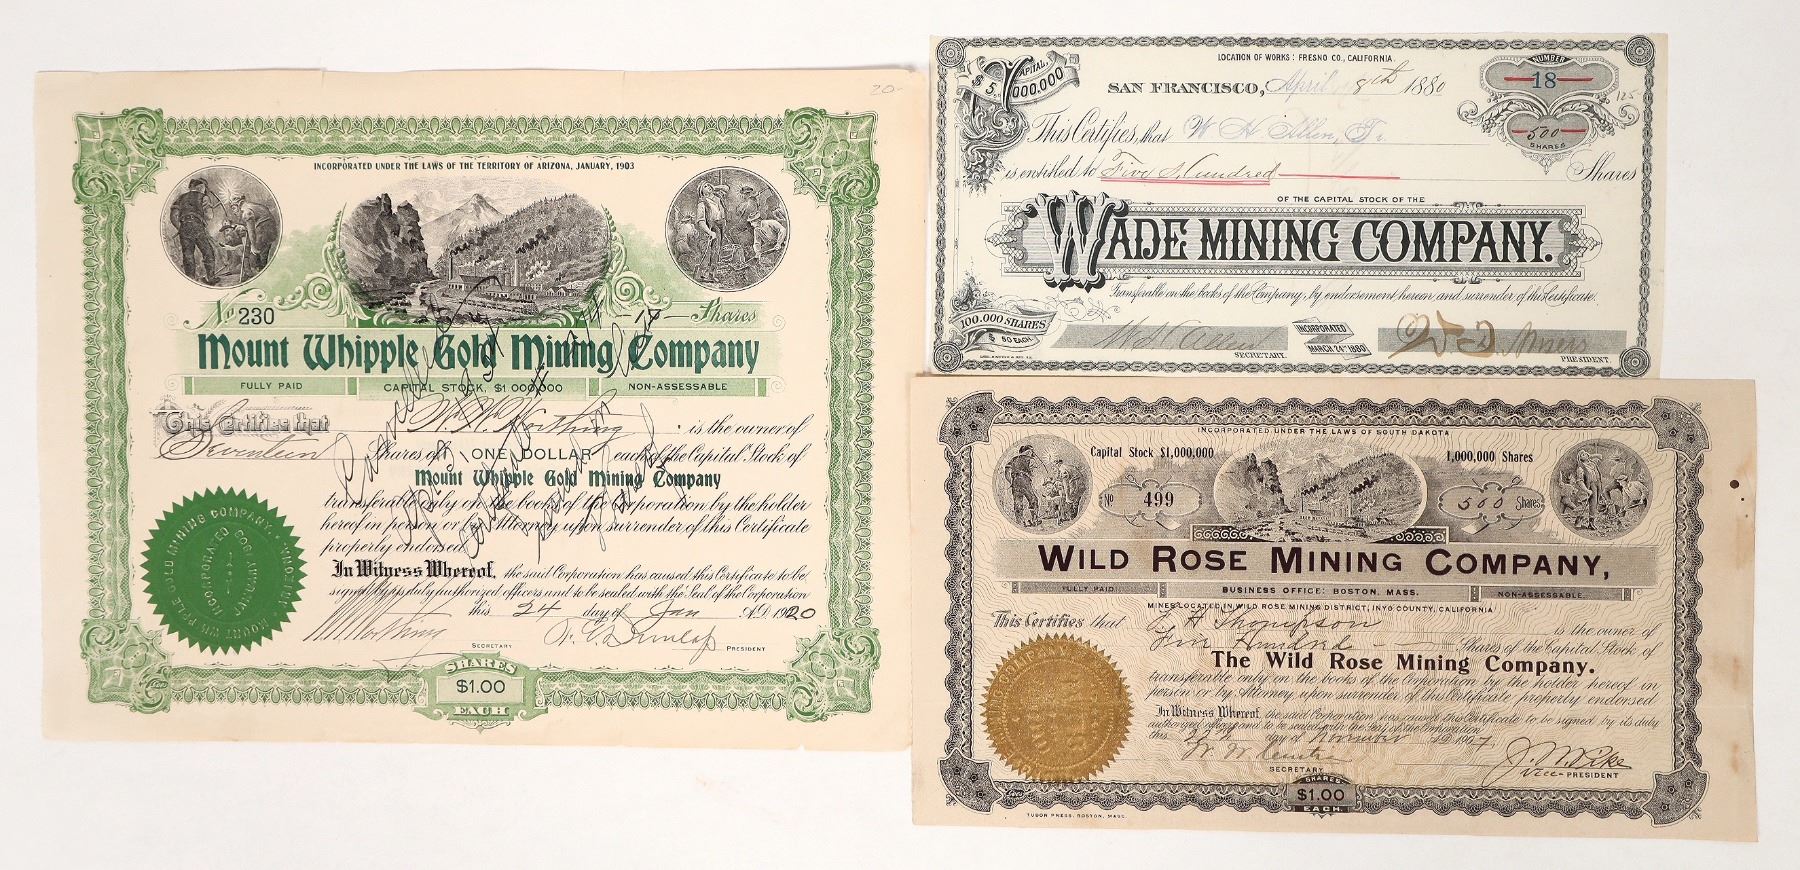 20-
INCORPORATED UNDER THE LAWS OF THE TERRITORY OF ARIZONA, JANUARY, 1903
No 230
-15- Shares
Mount Whipple Gold Mining Company
FULLY PAID
CAPITAL STOCK, $1 000,000
NON-ASSESSABLE
This Certifies that W. W. Worthing is the owner of
Seventeen Shares of ONE DOLLAR each of the Capital Stock of
Mount Whipple Gold Mining Company
transferable only on the books of the Corporation by the holder
hereof in person or by Attorney upon surrender of this Certificate
properly endorsed.
In Witness Whereof, the said Corporation has caused this Certificate to be
signed by its duly authorized officers and to be sealed with the Seal of the Corporation
this 24 day of Jan A.D. 1920
Cancelled
SECRETARY
F. C. Dunlap
PRESIDENT
SHARES
$1.00
EACH
MOUNT WHIPPLE GOLD MINING COMPANY
INCORPORATED
ARIZONA
LOCATION OF WORKS: FRESNO CO., CALIFORNIA.
CAPITAL,
$5,000.000
SAN FRANCISCO, April 8th 1880
NUMBER
18
125
500
SHARES
This Certifies, that W H Allen, Tr.
is entitled to Five Hundred Shares
OF THE CAPITAL STOCK OF THE
WADE MINING COMPANY.
Transferable on the books of the Company, by endorsement hereon and surrender of this Certificate.
100.000 SHARES
$ 50 EACH.
W H Allen
SECRETARY.
INCORPORATED
MARCH 24TH 1880
Myers
PRESIDENT
INCORPORATED UNDER THE LAWS OF SOUTH DAKOTA
Capital Stock $1,000,000
1,000,000 Shares
No 499
500 Shares
WILD ROSE MINING COMPANY,
FULLY PAID
BUSINESS OFFICE: BOSTON, MASS.
NON-ASSESSABLE
MINES LOCATED IN WILD ROSE MINING DISTRICT, INYO COUNTY, CALIFORNIA
This Certifies that H Thompson is the owner of
Five Hundred Shares of the Capital Stock of
The Wild Rose Mining Company.
transferable only on the books of the Corporation by the holder hereof in
person or by Attorney upon surrender of this Certificate properly endorsed
In Witness Whereof, the said Corporation has caused this Certificate to be signed by its duly
authorized officers and to be sealed with the Seal of the Corporation
this 22 day of November AD 1907
SECRETARY
VICE-PRESIDENT
SHARES
$1.00
EACH
TUDOR PRESS, BOSTON, MASS.